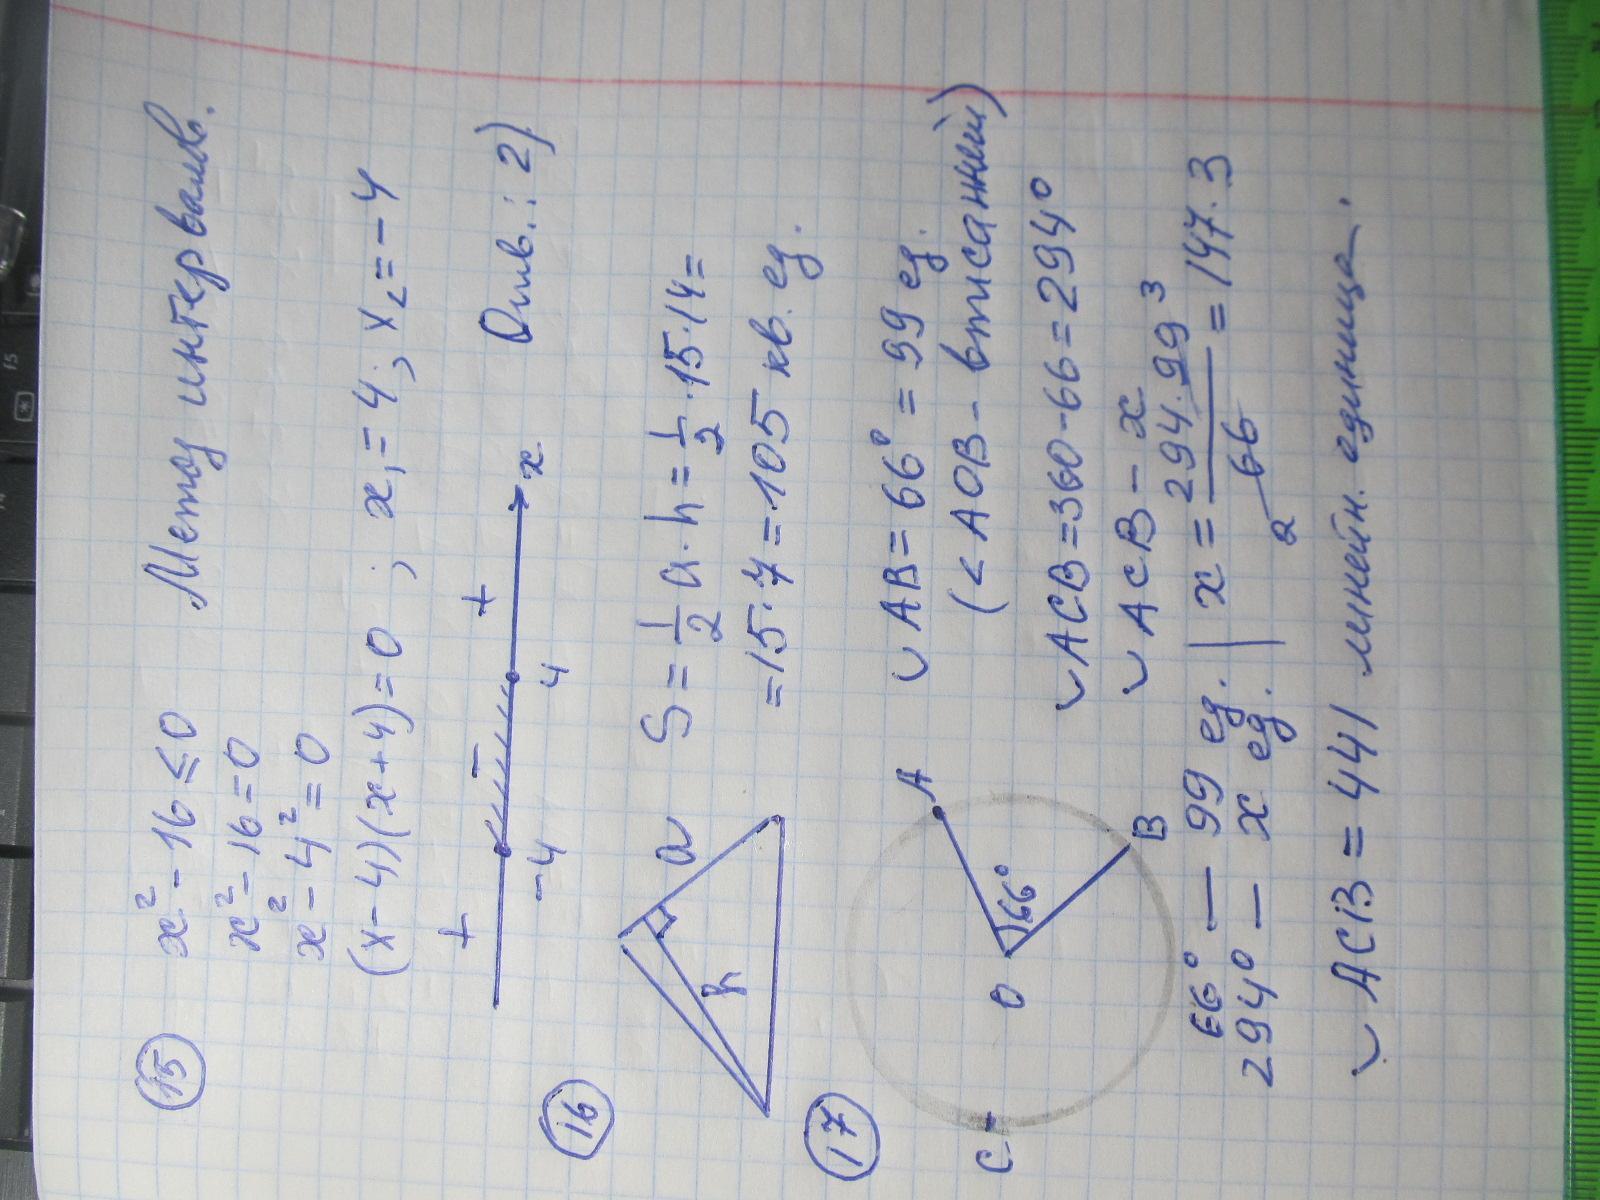 15
x² - 16 ≤ 0 Метод интервалов.
x² - 16 = 0
x² - 4² = 0
(x - 4)(x + 4) = 0 ; x₁ = 4 ; x₂ = -4
+ - + x
-4 4 Отв.: 2)
16
a
h
S = 1/2 a · h = 1/2 · 15 · 14 =
= 15 · 7 = 105 кв. ед.
17
A
O 66°
B
C
◡ AB = 66° = 99 ед.
(< AOB - вписанный)
◡ ACB = 360 - 66 = 294°
◡ ACB - x
66° — 99 ед. | x = 294 · 99 ³ / 66 ₂ = 147 · 3
294° — x ед. |
◡ ACB = 441 линейн. единица.